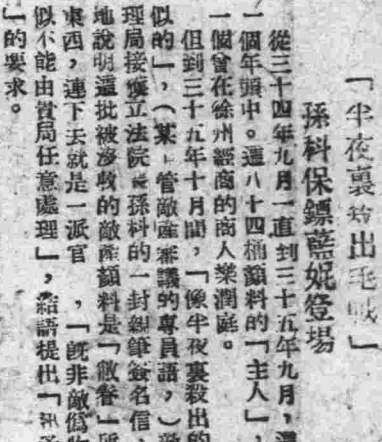 「半夜裏殺出毛賊」
孫科保鏢藍妮登場
從三十四年九月一直到三十五年九月，
一個年頭中。這八十四桶顏料的「主人」，
一個曾在徐州經商的商人樂潤庭。
但到三十五年十月間，「像半夜裏殺出的
似的」，（某一管敵產審議的專員語，）
理局接獲立法院長孫科的一封親筆簽名信，
地說明這批被沒收的敵產顏料是「敝眷」所
東西，連下去就是一派官，「既非敵偽
似不能由貴局任意處理」，結語提出「
」的要求。